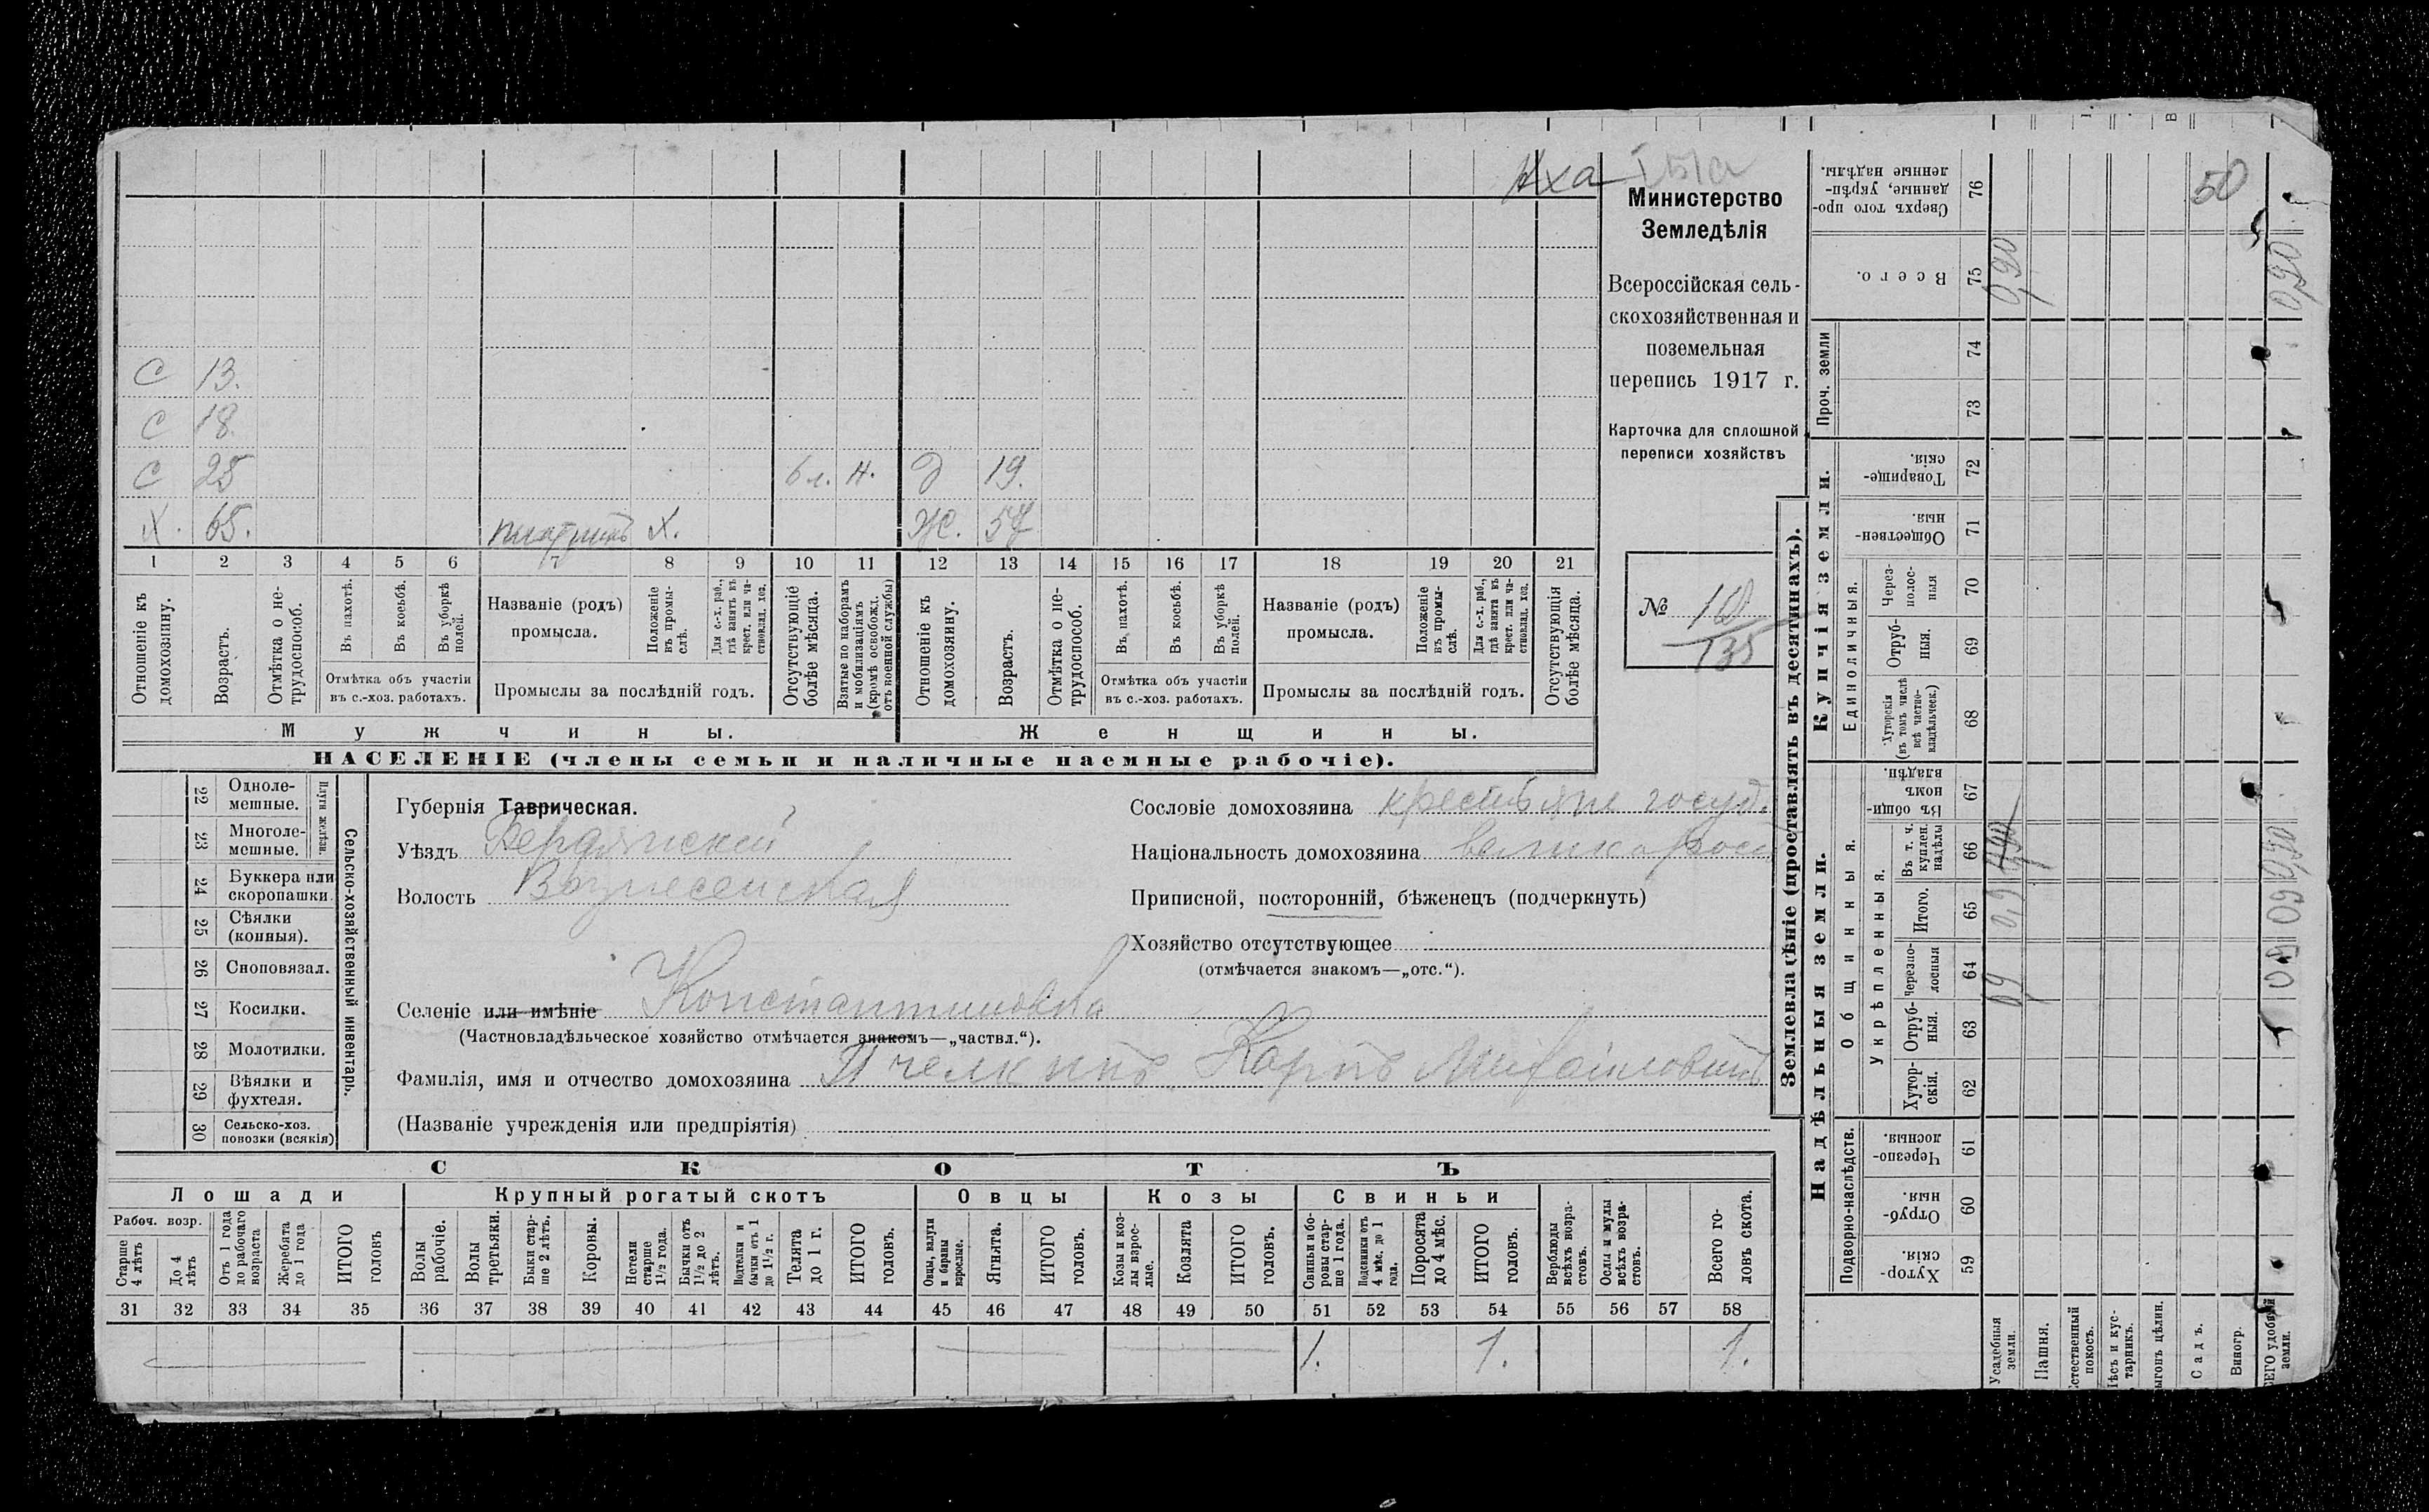 Аха
Министерство
Земледѣлія
Всероссійская сель-
скохозяйственная и
поземельная
перепись 1917 г.
Карточка для сплошной
переписи хозяйствъ
№ 10
135
С 13.
С 18
С 25 6 л. н. д 19.
Х. 65. Х. Ж. 57
1 2 3 4 5 6 7 8 9 10 11 12 13 14 15 16 17 18 19 20 21
Отношеніе къ домохозяину.
Возрастъ.
Отмѣтка о не-трудоспособ.
Въ пахотѣ.
Въ косьбѣ.
Въ уборкѣ полей.
Отмѣтка объ участіи
въ с.-хоз. работахъ.
Названіе (родъ)
промысла.
Положеніе въ промы-слѣ.
Для с.-х. раб., гдѣ занятъ въ крест. или ча-стновлад. хоз.
Промыслы за послѣдній годъ.
Отсутствующіе болѣе мѣсяца.
Взятые по наборамъ и мобилизаціямъ (кромѣ освобожд. отъ военной службы)
Отношеніе къ домохозяину.
Возрастъ.
Отмѣтка о не-трудоспособ.
Въ пахотѣ.
Въ косьбѣ.
Въ уборкѣ полей.
Отмѣтка объ участіи
въ с.-хоз. работахъ.
Названіе (родъ)
промысла.
Положеніе въ промы-слѣ.
Для с.-х. раб., гдѣ занята въ крест. или ча-стновлад. хоз.
Промыслы за послѣдній годъ.
Отсутствующія болѣе мѣсяца.
Мужчины. Женщины.
НАСЕЛЕНІЕ (члены семьи и наличные наемные рабочіе).
22 Одноле-мешные.
23 Многоле-мешные.
Плуги желѣзн.
24 Буккера или скоропашки
25 Сѣялки (конныя).
26 Сноповязал.
27 Косилки.
28 Молотилки.
29 Вѣялки и фухтеля.
30 Сельско-хоз. повозки (всякія)
Сельско-хозяйственный инвентарь.
Губернія Таврическая.
Уѣздъ Бердянскій
Волость Вознесенская
Селеніе или имѣніе Константиновка
(Частновладѣльческое хозяйство отмѣчается знакомъ—„частвл.“).
Фамилія, имя и отчество домохозяина Пчелкинъ Карпъ Михайловичъ
(Названіе учрежденія или предпріятія)
Сословіе домохозяина крестьяне госуд.
Національность домохозяина великоросс
Приписной, посторонній, бѣженецъ (подчеркнуть)
Хозяйство отсутствующее
(отмѣчается знакомъ—„отс.“).
СКОТЪ
Лошади Крупный рогатый скотъ Овцы Козы Свиньи
Рабоч. возр.
Старше 4 лѣтъ
До 4 лѣтъ
Отъ 1 года до рабочаго возраста
Жеребята до 1 года
ИТОГО головъ
Волы рабочіе.
Волы третьяки.
Быки стар-ше 2 лѣтъ.
Коровы.
Нетели старше 1½ года.
Бычки отъ 1½ до 2 лѣтъ.
Подтелки и бычки отъ 1 до 1½ г.
Телята до 1 г.
ИТОГО головъ.
Овцы, валухи и бараны взрослые.
Ягнята.
ИТОГО головъ.
Козы и коз-лы взрос-лые.
Козлята
ИТОГО головъ.
Свиньи и бо-ровы стар-ше 1 года.
Подсвинки отъ 4 мѣс. до 1 года.
Поросята до 4 мѣс.
ИТОГО головъ.
Верблюды всѣхъ возра-стовъ.
Ослы и мулы всѣхъ возра-стовъ.
Всего го-ловъ скота.
31 32 33 34 35 36 37 38 39 40 41 42 43 44 45 46 47 48 49 50 51 52 53 54 55 56 57 58
1. 1. 1.
Землевладѣніе (проставлять въ десятинахъ).
Надѣльныя земли. Купчія земли. Проч. земли
Подворно-наслѣдств.
Общинныя.
Укрѣпленныя.
Единоличныя.
Хутор-скія. 59
Отруб-ныя. 60
Черезпо-лосныя. 61
Хутор-скія. 62
Отруб-ныя. 63
Черезпо-лосныя 64
Итого. 65
Въ т. ч. куплен. надѣлы 66
Въ общин-номъ владѣн. 67
Хуторскія (въ томъ числѣ всѣ частно-владѣльческ.) 68
Отруб-ныя. 69
Через-полос-ныя 70
Обществен-ныя. 71
Товарище-скія. 72
73
74
Всего. 75
Сверхъ того про-данные, укрѣп-ленные надѣлы. 76
Усадебныя земли. 0,90
Пашня.
Естественный покосъ.
Лѣсъ и кус-тарникъ.
Выгонъ цѣлин.
Садъ. 50
Виногр.
ВСЕГО удобной земли. 0,90